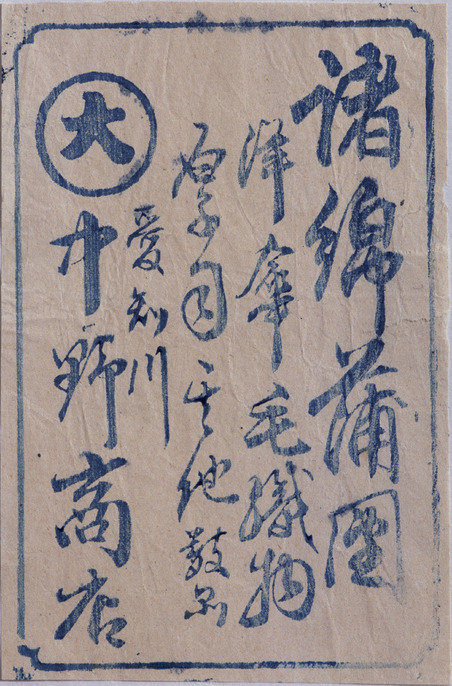 諸綿蒲團
洋傘毛織物
厚司其他数品
愛知川
大
中野商店